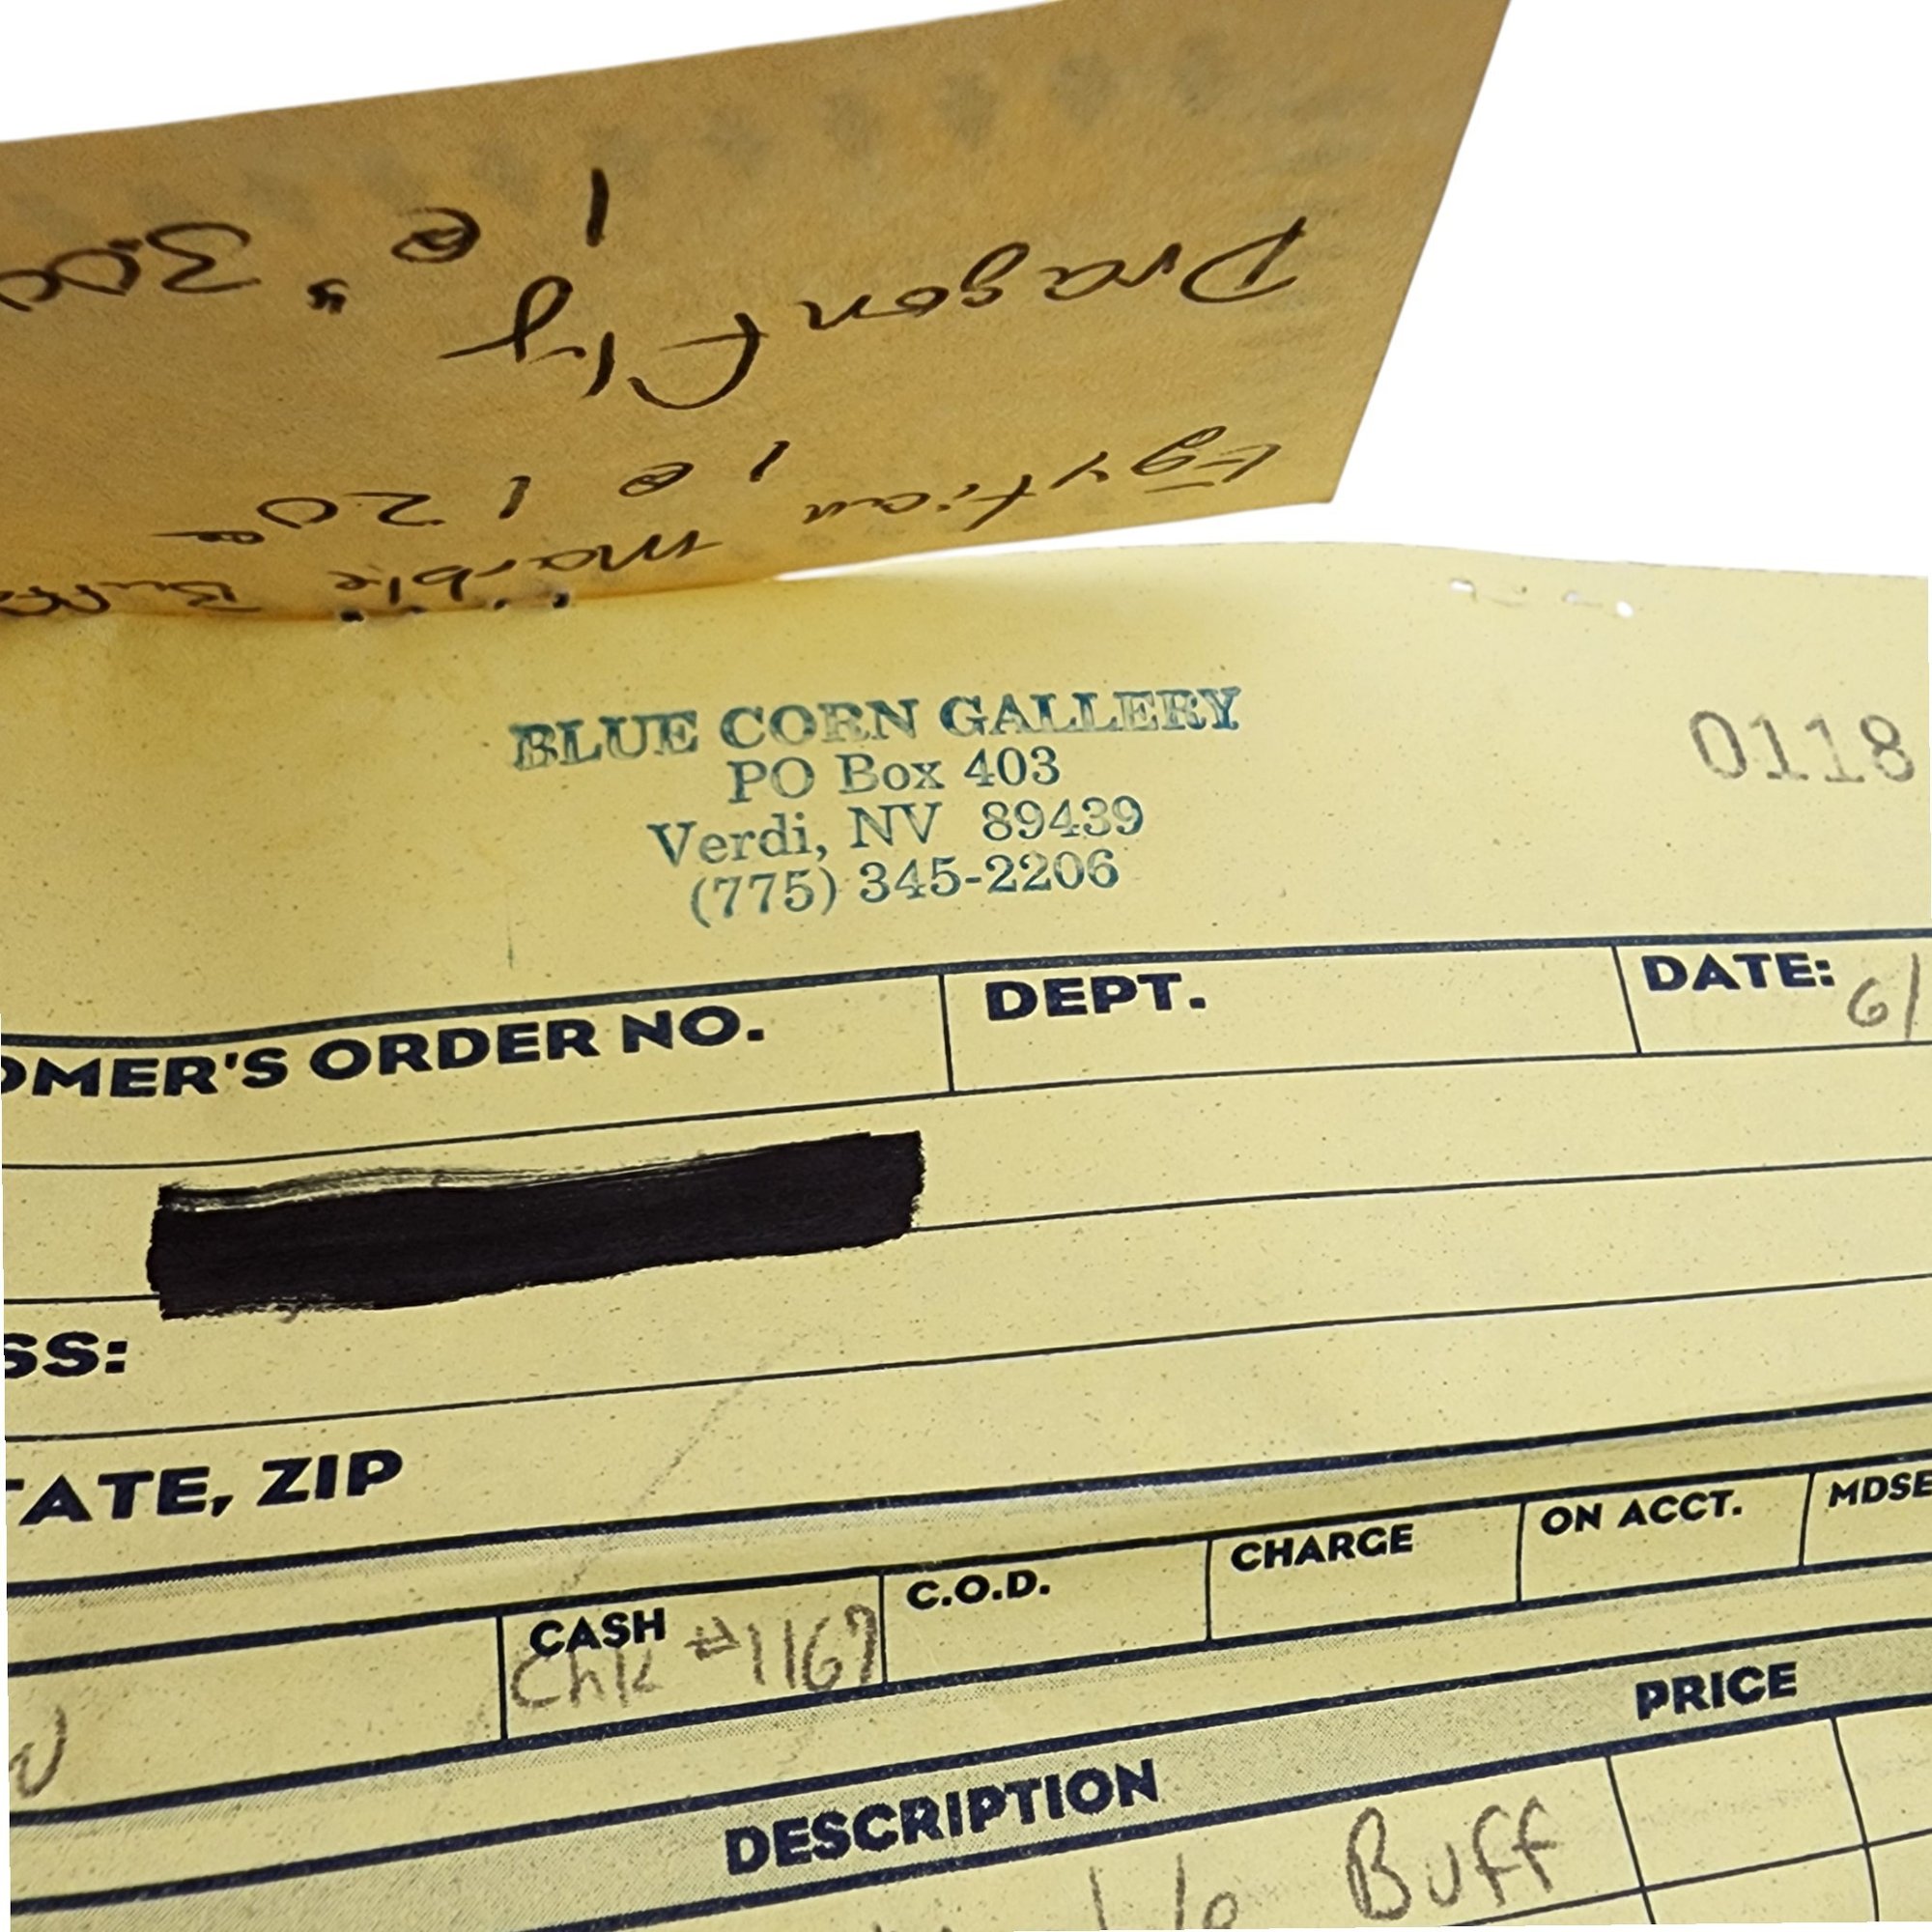 Egytian marble Buff
1, @ 120
Dragon fly
1 @ " 300
BLUE CORN GALLERY
PO Box 403
Verdi, NV 89439
(775) 345-2206
0118
OMER'S ORDER NO.
DEPT.
DATE: 6/
SS:
TATE, ZIP
CASH
Chk #1167
C.O.D.
CHARGE
ON ACCT.
MDSE
DESCRIPTION
PRICE
Buff